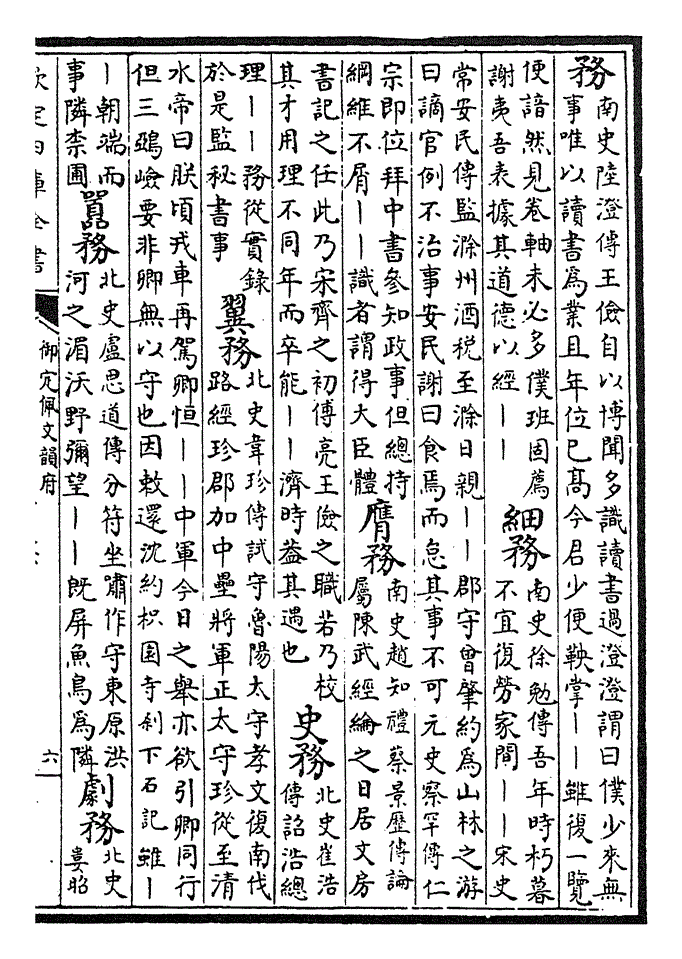 務
南史陸澄傳王儉自以博聞多識讀書過澄澄謂曰僕少來無
事唯以讀書為業且年位已髙今君少便鞅掌——雖復一覽
便諳然見卷軸未必多僕班固薦
謝夷吾表據其道德以經——
細務
南史徐勉傳吾年時朽暮
不宜復勞家間——宋史
常安民傳監滁州酒税至滁日親——郡守曾肇約為山林之游
曰謫官例不治事安民謝曰食焉而怠其事不可元史察罕傳仁
宗即位拜中書參知政事但總持
綱維不屑——識者謂得大臣體
膺務
南史趙知禮蔡景歴傳論
屬陳武經綸之日居文房
書記之任此乃宋齊之初傅亮王儉之職若乃校
其才用理不同年而卒能——濟時葢其遇也
史務
北史崔浩
傳詔浩總
理——務從實錄
於是監秘書事
翼務
北史韋珍傳試守魯陽太守孝文復南伐
路經珍郡加中壘將軍正太守珍從至清
水帝曰朕頃戎車再駕卿恒——中軍今日之舉亦欲引卿同行
但三鵶嶮要非卿無以守也因敕還沈約枳園寺刹下石記雖—
—朝端而
事隣柰圃
囂務
北史盧思道傳分符坐嘯作守東原洪
河之湄沃野彌望——既屏魚鳥為隣
劇務
北史
婁昭
欽定四庫全書
御定佩文韻府
六